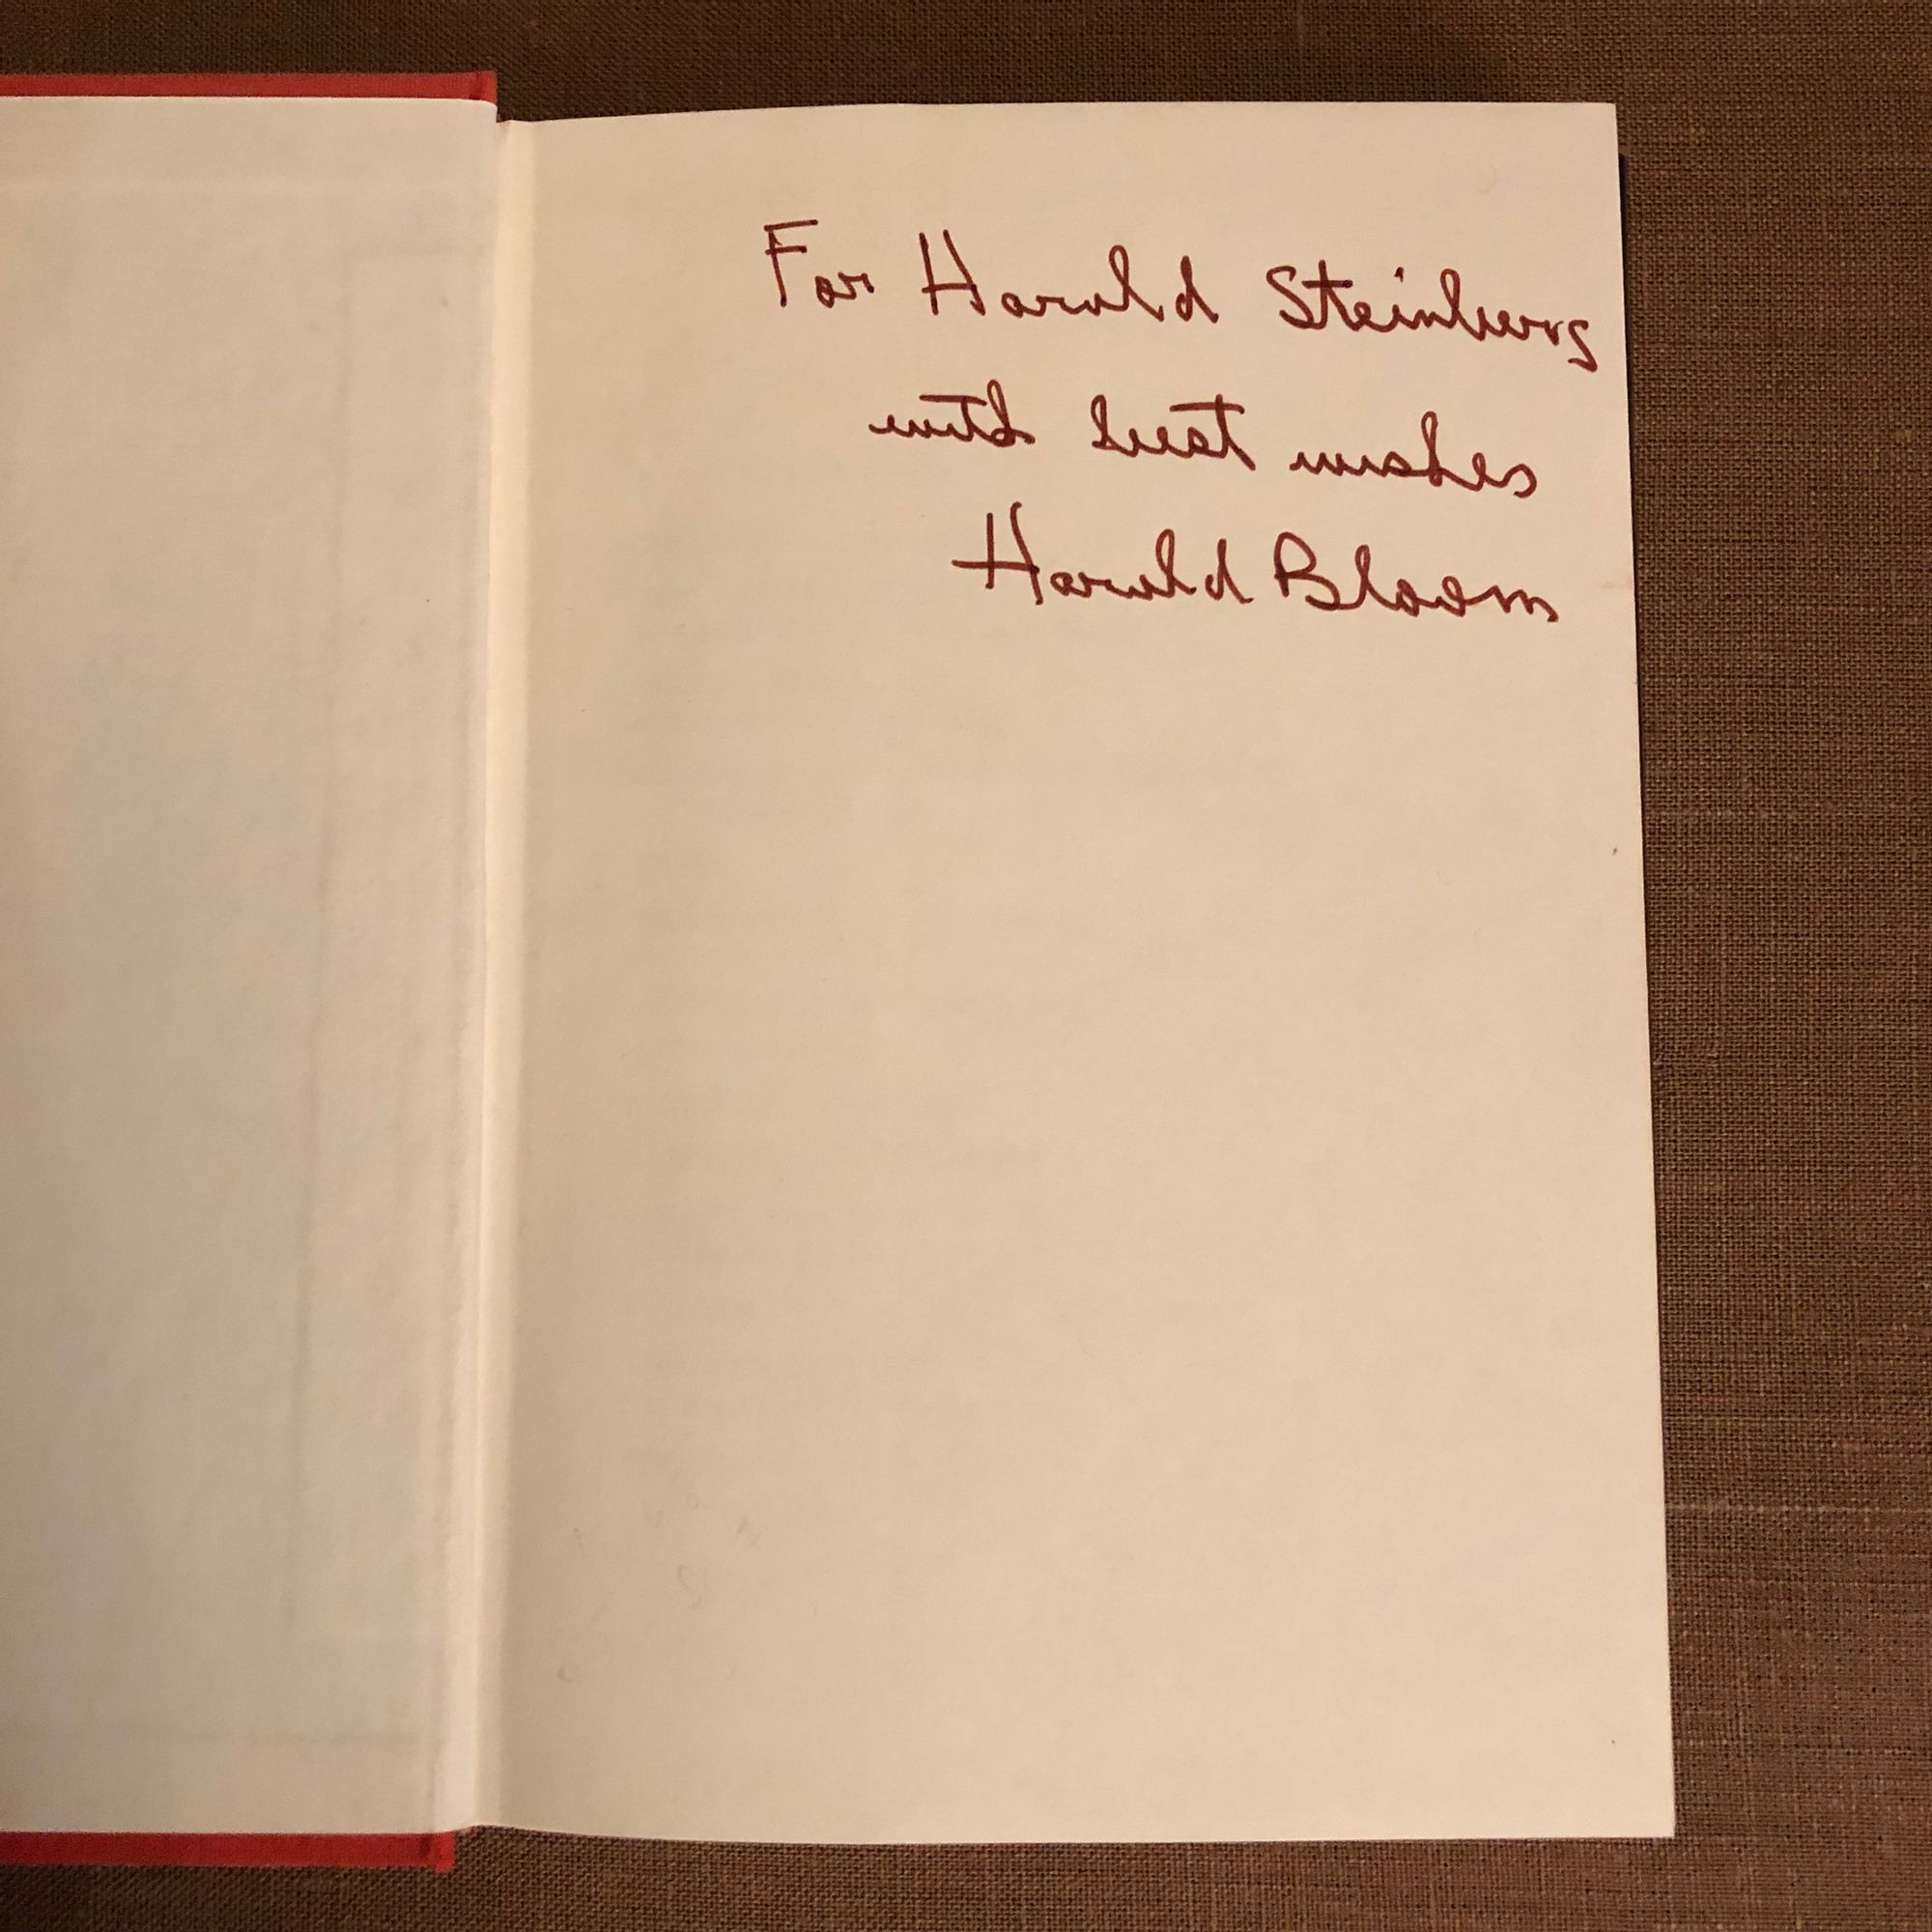 For Harold Steinberg
with best wishes
Harold Bloom